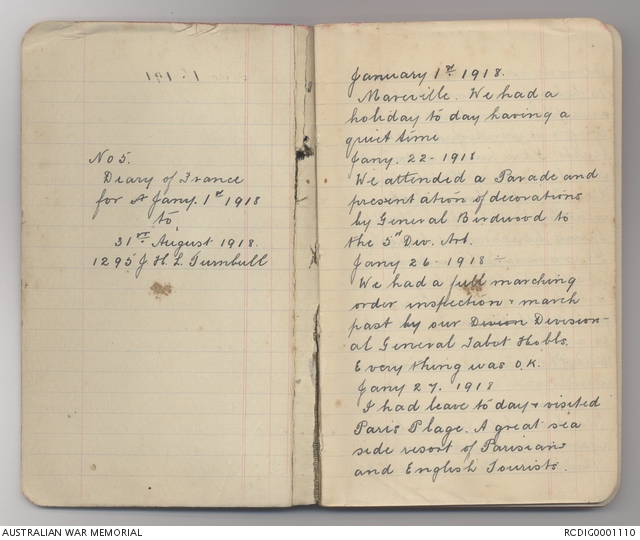 No 5.
Diary of France
for A Jany. 1st 1918
to,
31st August 1918.
1295 J H. L. Turnbull
January 1st. 1918.
Marerville. We had a
holiday to day having a
quiet time
Jany. 22 - 1918
We attended a Parade and
presentation of decorations
by General Birdwood to
the 5th Div. Art.
Jany 26 - 1918 -
We had a full marching
order inspection & march
past by our Division Division-
al General Tabot Hobbs.
Everything was O.K.
Jany 27. 1918
I had leave to day & visited
Paris Plage. A great sea
side resort of Parisians
and English Tourists.
AUSTRALIAN WAR MEMORIAL
RCDIG0001110